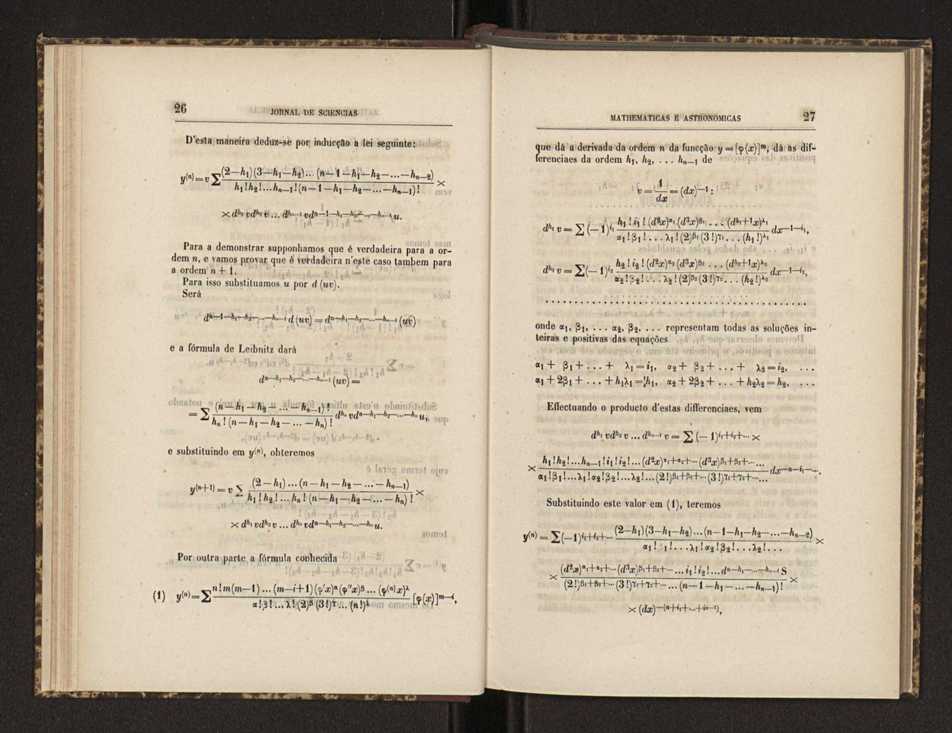 26
JORNAL DE SCIENCIAS
D'esta maneira deduz-se por inducção a lei seguinte:
y⁽ⁿ⁾ = v ∑ (2−h₁)(3−h₁−h₂)...(n−1−h₁−h₂−...−hₙ₋₂) / h₁!h₂!...hₙ₋₁!(n−1−h₁−h₂−...−hₙ₋₁)! ×
× dʰ¹ vdʰ² v ... dʰⁿ⁻¹ vdⁿ⁻¹⁻ʰ¹⁻ʰ²⁻...⁻ʰⁿ⁻¹ u.
Para a demonstrar supponhamos que é verdadeira para a or-
dem n, e vamos provar que é verdadeira n'este caso tambem para
a ordem n + 1.
Para isso substituamos u por d (uv).
Será
dⁿ⁻¹⁻ʰ¹⁻ʰ²⁻...⁻ʰⁿ⁻¹ d (uv) = dⁿ⁻ʰ¹⁻ʰ²⁻...⁻ʰⁿ⁻¹ (uv)
e a fórmula de Leibnitz dará
dⁿ⁻ʰ¹⁻ʰ²⁻...⁻ʰⁿ⁻¹ (uv) =
= ∑ (n−h₁−h₂−...−hₙ₋₁)! / hₙ! (n−h₁−h₂−...−hₙ)! dʰⁿ vdⁿ⁻ʰ¹⁻ʰ²⁻...⁻ʰⁿ u,
e substituindo em y⁽ⁿ⁾, obteremos
y⁽ⁿ⁺¹⁾ = v ∑ (2−h₁)...(n−h₁−h₂−...−hₙ₋₁) / h₁!h₂!...hₙ!(n−h₁−h₂−...−hₙ)! ×
× dʰ¹ vdʰ² v ... dʰⁿ vdⁿ⁻ʰ¹⁻ʰ²⁻...⁻ʰⁿ u.
Por outra parte a fórmula conhecida
(1) y⁽ⁿ⁾ = ∑ n!m(m−1)...(m−i+1)(φ'x)^α(φ''x)^β...(φ⁽ⁿ⁾x)^λ / α!β!...λ!(2)^β(3!)^γ...(n!)^λ [φ(x)]ᵐ⁻ⁱ,
MATHEMATICAS E ASTRONOMICAS
27
que dá a derivada da ordem n da funcção y = [φ(x)]ᵐ, dá as dif-
ferenciaes da ordem h₁, h₂, ... hₙ₋₁ de
v = 1/dx = (dx)⁻¹ :
dʰ¹ v = ∑(−1)^i₁ h₁!i₁!(d²x)^α₁(d³x)^β₁...(d^(h₁+1)x)^λ₁ / α₁!β₁!...λ₁!(2)^β₁(3!)^γ₁...(h₁!)^λ₁ dx^(−1−i₁),
dʰ² v = ∑(−1)^i₂ h₂!i₂!(d²x)^α₂(d³x)^β₂...(d^(h₂+1)x)^λ₂ / α₂!β₂!...λ₂!(2)^β₂(3!)^γ₂...(h₂!)^λ₂ dx^(−1−i₂),
. . . . . . . . . . . . . . . . . . . . . . . . . . . . . . . . . . . .
onde α₁, β₁, ... α₂, β₂, ... representam todas as soluções in-
teiras e positivas das equações
α₁ + β₁ + ... + λ₁ = i₁, α₂ + β₂ + ... + λ₂ = i₂, ...
α₁ + 2β₁ + ... + h₁λ₁ = h₁, α₂ + 2β₂ + ... + h₂λ₂ = h₂, ...
Effectuando o producto d'estas differenciaes, vem
dʰ¹ vdʰ² v ... dʰⁿ⁻¹ v = ∑(−1)^(i₁+i₂+...) ×
× h₁!h₂!...hₙ₋₁!i₁!i₂!...(d²x)^(α₁+α₂+...)(d³x)^(β₁+β₂+...)... / α₁!β₁!...λ₁!α₂!β₂!...λ₂!...(2!)^(β₁+β₂+...)(3!)^(γ₁+γ₂+...)... dx^(−n−i₁−...).
Substituindo este valor em (1), teremos
y⁽ⁿ⁾ = ∑(−1)^(i₁+i₂+...) (2−h₁)(3−h₁−h₂)...(n−1−h₁−h₂−...−hₙ₋₂) / α₁!β₁!...λ₁!α₂!β₂!...λ₂!... ×
× (d²x)^(α₁+α₂+...)(d³x)^(β₁+β₂+...)...i₁!i₂!...d^(n−h₁−...−hₙ₋₁) S / (2!)^(β₁+β₂+...)(3!)^(γ₁+γ₂+...)...(n−1−h₁−...−hₙ₋₁)! ×
× (dx)^(−(n+i₁+...+iₙ₋₁)),